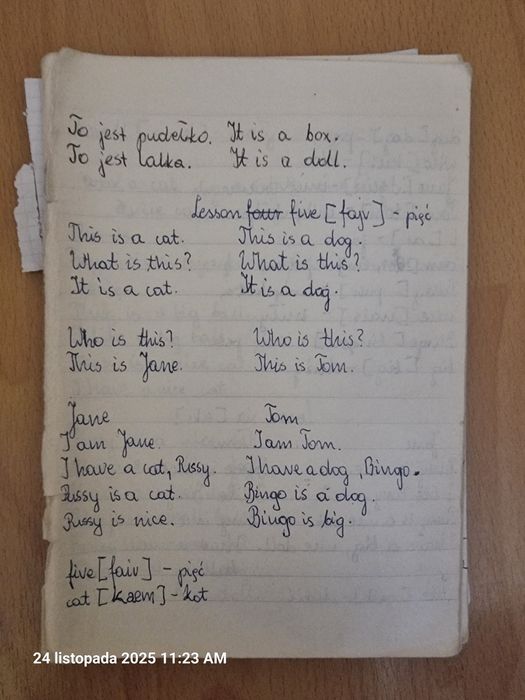 To jest pudełko. It is a box.
To jest lalka. It is a doll.
Lesson four five [fajv] - pięć
This is a cat. This is a dog.
What is this? What is this?
It is a cat. It is a dog.
Who is this? Who is this?
This is Jane. This is Tom.
Jane Tom
I am Jane. I am Tom.
I have a cat, Pussy. I have a dog, Bingo.
Pussy is a cat. Bingo is a dog.
Pussy is nice. Bingo is big.
five [faiv] - pięć
cat [kaem] - kot
24 listopada 2025 11:23 AM